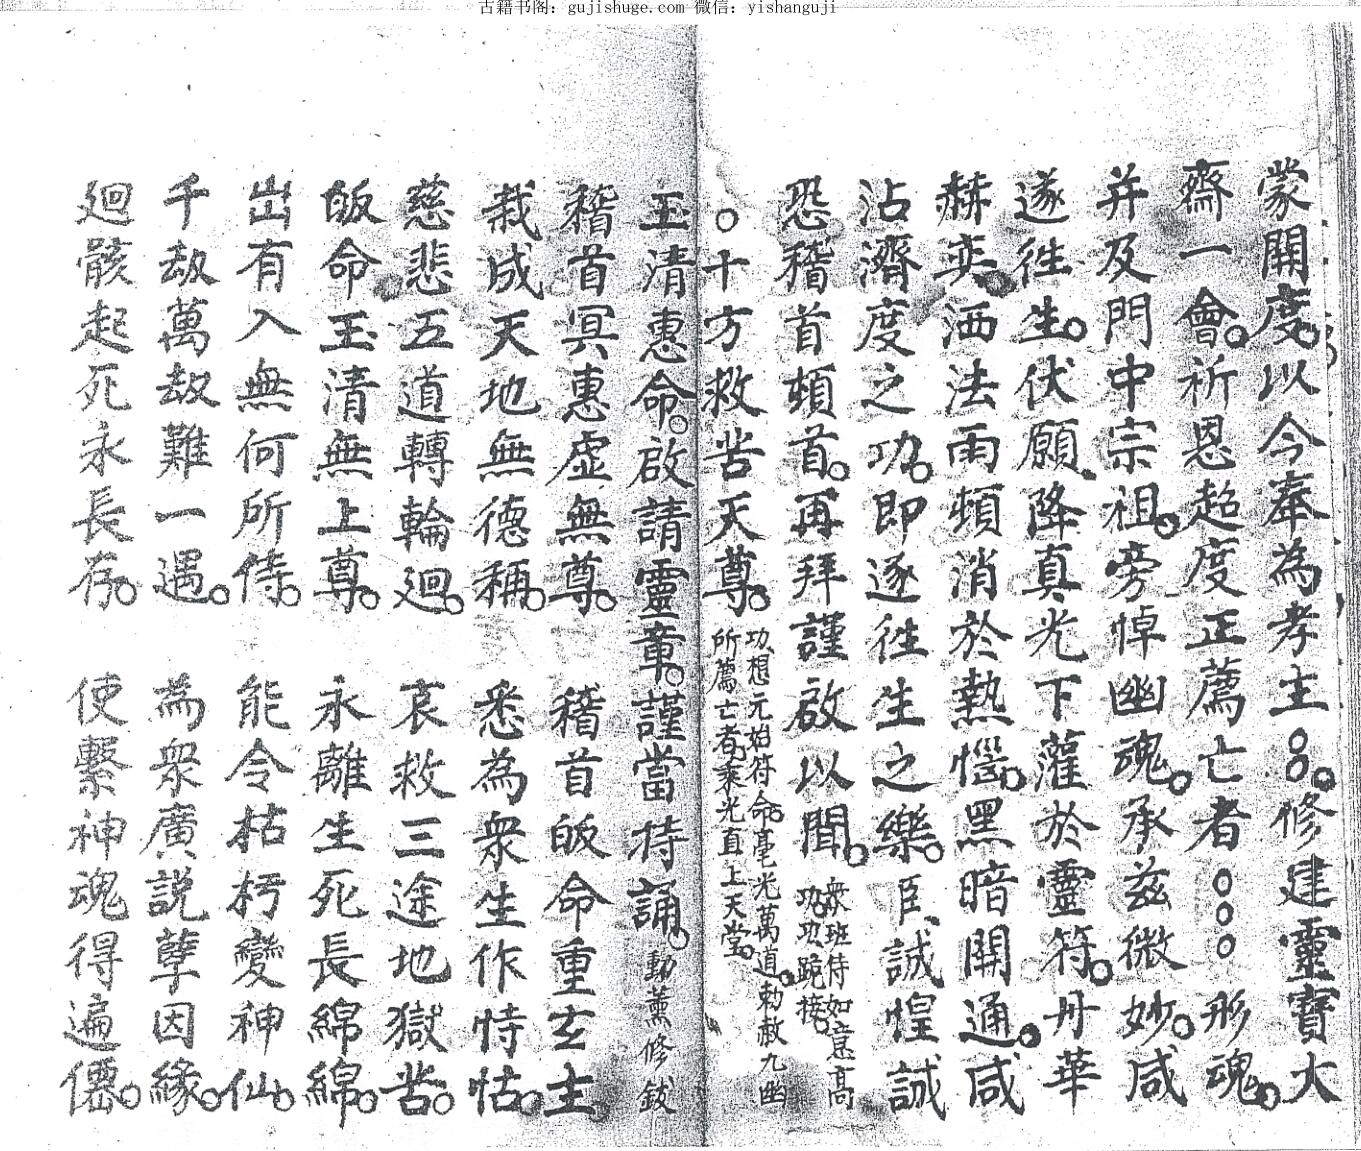 古籍书阁：gujishuge.com 微信：yishanguji
蒙開度。以今奉為孝主○○。修建靈寶大
齋一會。祈恩超度正薦亡者○○○形魂。
并及門中宗祖。旁悼幽魂。承茲微妙。咸
遂徃生。伏願降真光下灌於靈符。丹華
赫奕洒法雨頓消於熱惱。黑暗開通。咸
沾濟度之功。即逐徃生之樂。臣誠惶誠
恐稽首頓首。再拜謹啟以聞。
衆班侍如意高
功跪接。
○十方救苦天尊。
功想元始符命。毫光萬道。勅赦九幽
所薦亡者。乘光直上天堂。
玉清惠命。啟請靈章。謹當持誦。動薰修鈸
稽首冥惠虛無尊。 稽首皈命重玄主。
栽成天地無德稱。 悉為衆生作恃怙。
慈悲五道轉輪廻。 哀救三途地獄苦。
皈命玉清無上尊。 永離生死長綿綿。
出有入無何所侍。 能令枯朽變神仙。
千劫萬劫難一遇。 為衆廣説孽因緣。
廻骸起死永長存。 使繫神魂得遍僊。